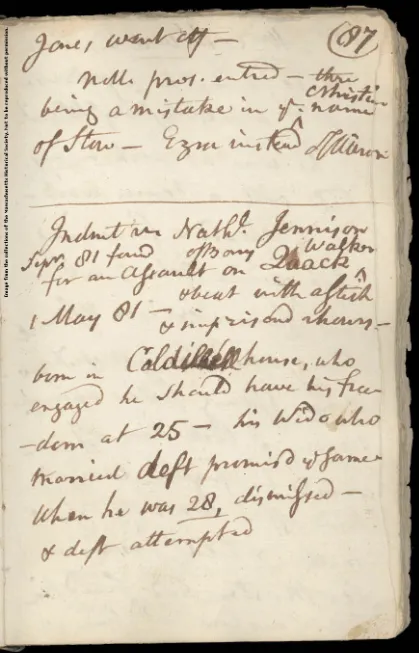 (87)
Jones went off —
Nolle pros. entred — thre
being a mistake in ye. Christian name
of Stow — Ezra instead of Aaron
Indmt vs Nathl. Jennison
Sepr. 81 found of Barry
for an assault on Quack Walker
1 May 81 — & beat with a stick
& imprisond 2 hours —
born in Coldwell house, who
engaged he should have his free
-dom at 25 — his Wido who
married deft promisd ye same
when he was 28, dismissed —
& deft attempted
Image from the collections of the Massachusetts Historical Society. Not to be reproduced without permission.